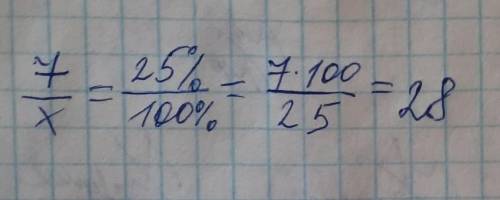 7/x = 25%/100% = 7·100/25 = 28